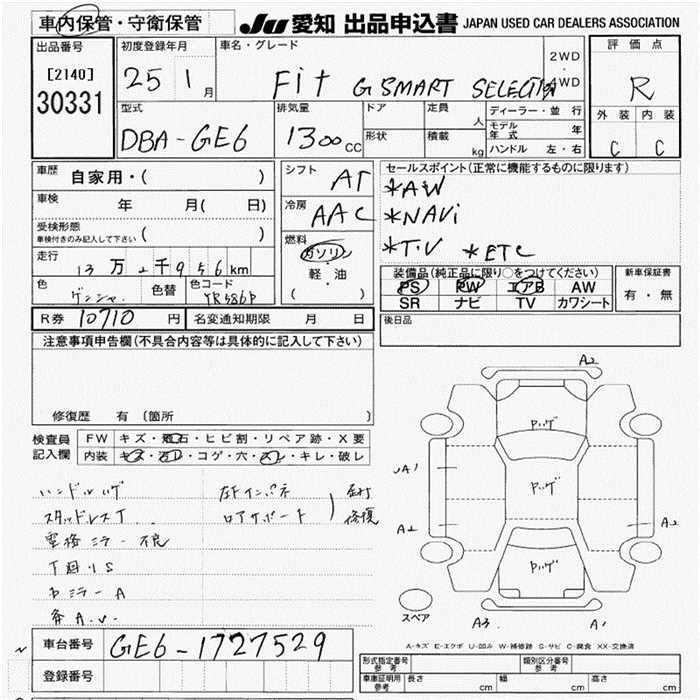 車内保管・守衛保管
JU 愛知 出品申込書 JAPAN USED CAR DEALERS ASSOCIATION
出品番号
[2140]
30331
初度登録年月
25 1 月
車名・グレード
Fit G SMART SELECTION
2WD
4WD
評価点
R
外装 内装
C C
型式
DBA-GE6
排気量
1300 CC
ドア
形状
定員
人
積載
kg
ディーラー・並行
モデル年式 年
ハンドル 左・右
車歴 自家用・( )
車検 年 月( 日)
受検形態
車検付きのみ記入して下さい ( )
走行 13万2千956km
色
色替
色コード
YR586P
シフト AT
冷房 AAC
燃料
ガソリン
軽・油
( )
セールスポイント(正常に機能するものに限ります)
*AW
*NAVi
*T・V *ETC
装備品(純正品に限り○をつけてください)
PS PW エアB AW
SR ナビ TV カワシート
新車保証書
有・無
R券 10710 円
名変通知期限 月 日
後日品
注意事項申告欄(不具合内容等は具体的に記入して下さい)
修復歴 有 (箇所 )
検査員記入欄
FW キズ・飛石・ヒビ割・リペア跡・X要
内装 キズ・ヨゴレ・コゲ・穴・スレ・キレ・破レ
ハンドルハゲ
スタッドレスT
左Fインパネ
ロアサポート
修復
下回りS
ミラーA
A2
ハゲ
A1
ハゲ
A2
A2
ハゲ
スペア
A3
A1
A-キズ E-エクボ U-凹み W-補修跡 S-サビ C-腐食 XX-交換済
車台番号 GE6-1727529
登録番号
型式指定番号
参考
類別区分番号
参考
車庫証明用
参考
長さ cm 幅 cm 高さ cm